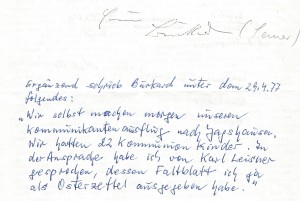 (Semer)
Ergänzend schrieb Burkard unter dem 29.4.77
folgendes:
„Wir selbst machen morgen unseren
Kommunikantenausflug nach Jagshausen.
Wir hatten 22 Kommunion Kinder. In
der Ansprache habe ich von Karl Leisner
gesprochen, dessen Faltblatt ich ja
als Osterzettel ausgegeben habe."